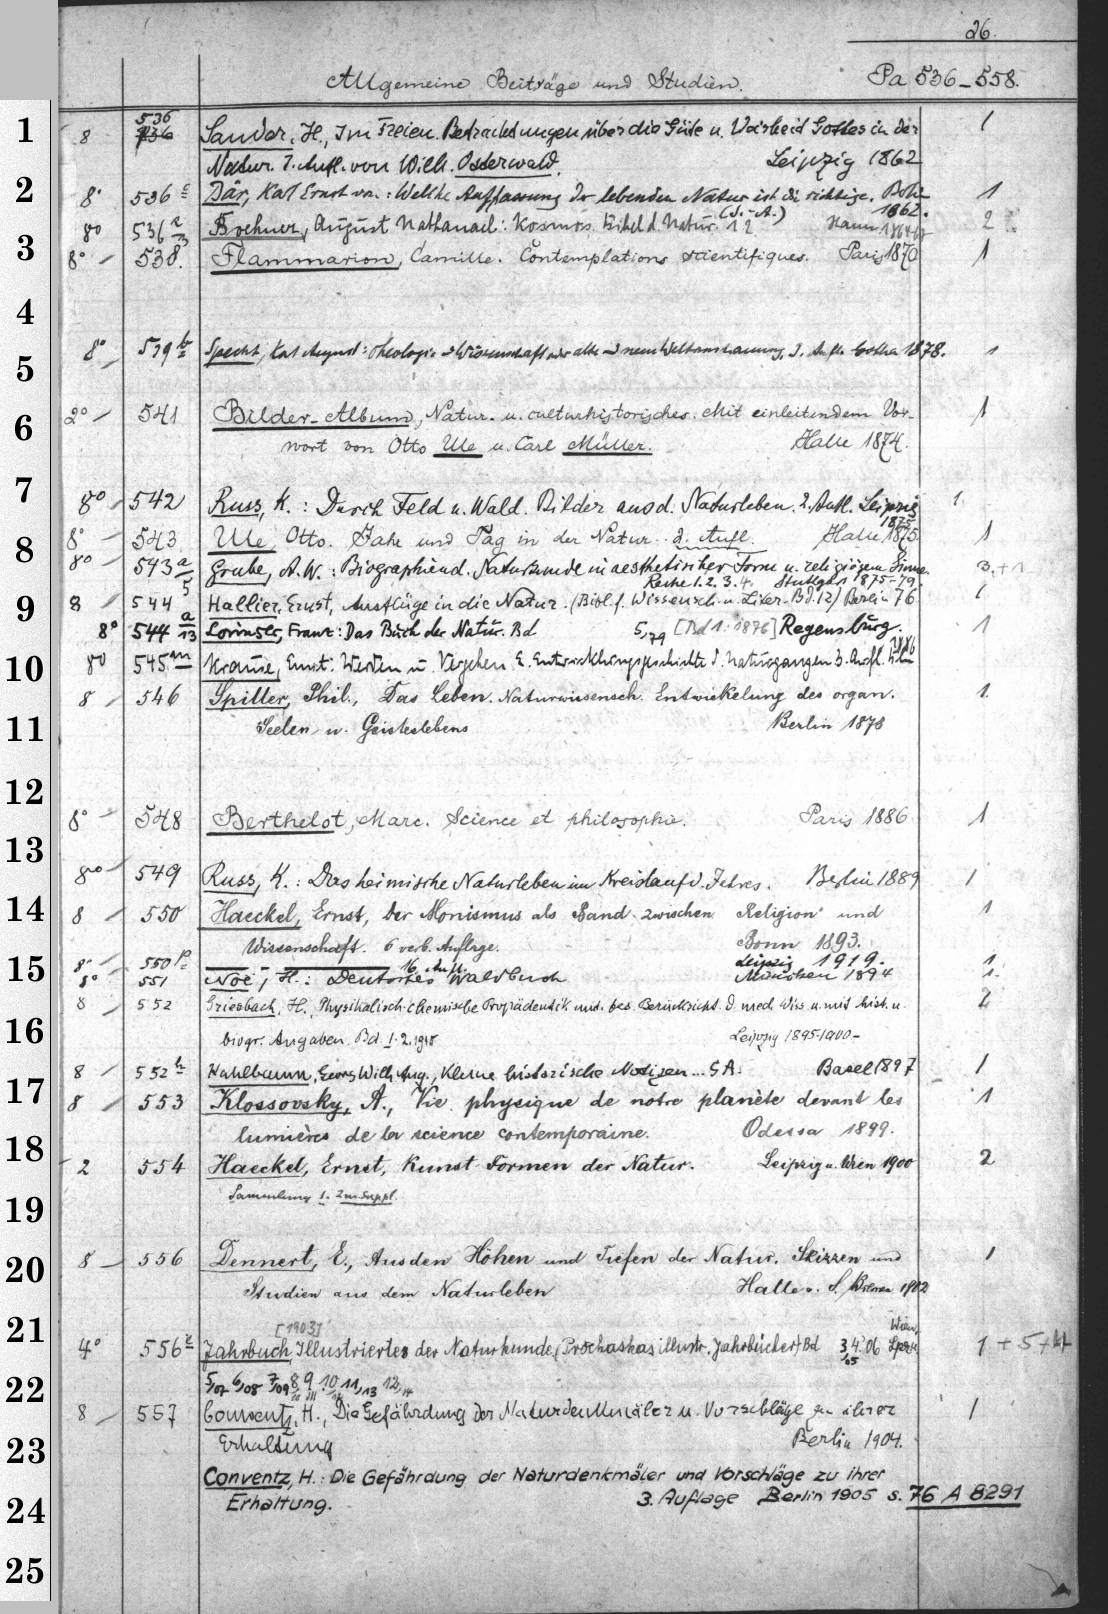 26.
Allgemeine Beiträge und Studien. Pa 536-558.
536
8 736 Sander, H., Im Freien. Betrachtungen über die Güte u. Weisheit Gottes in der 1
Natur. 7. Aufl. von Wilh. Osterwald. Leipzig 1862
8° 536 c Bär, Karl Ernst von: Welche Auffassung der lebenden Natur ist die richtige. Berlin 1
1862.
8° 536 Boehner, August Nathanael: Kosmos. Bibel d. Natur. 1 2 Hann. 2
8° - 538. Flammarion, Camille. Contemplations scientifiques. Paris 1870 1
8° 539 b Specht, Karl August: Theologie Wissenschaft oder alte neue Weltanschauung, 3. Aufl. Gotha 1878. 1
2° - 541 Bilder-Album, Natur- u. culturhistorisches. Mit einleitendem Vor- 1
wort von Otto Ule u. Carl Müller. Halle 1874.
8° - 542 Russ, K.: Durch Feld u. Wald. Bilder aus d. Naturleben. 2. Aufl. Leipzig 1.
1875
8° - 543 Ule, Otto. Jahr und Tag in der Natur. 2. Aufl. Halle 1875. 1
8° - 543 a/5 Grube, A. W.: Biographien d. Naturkunde in aesthetischer Form u. religiösem Sinne. 3. + 1
Reihe 1. 2. 3. 4. Stuttgart 1875-79
8 - 544 Hallier, Ernst, Ausflüge in die Natur. (Bibl. f. Wissensch. u. Liter. Bd. 12) Berlin 76 1
8° 544 a/13 Lorinser, Franz: Das Buch der Natur. Bd 5,79 [Bd 1: 1876] Regensburg. 1
8° 545 m Krause, Ernst: Werden u. Vergehen. E. Entwicklungsgeschichte d. Naturganzen 3. Aufl. Berlin 1886
8 - 546 Spiller, Phil., Das Leben. Naturwissensch. Entwickelung des organ. 1.
Seelen- u. Geisteslebens Berlin 1878
8° - 548 Berthelot, Marc. Science et philosophie. Paris 1886 1
8° - 549 Russ, K.: Das heimische Naturleben im Kreislauf d. Jahres. Berlin 1889 1
8 - 550 Haeckel, Ernst, der Monismus als Band zwischen Religion und 1
Wissenschaft. 6 verb. Auflage. Bonn 1893.
8° - 550 p — — 16. Aufl. Leipzig 1919. 1
8° 551 Noë, H.: Deutsches Waldbuch München 1894 1.
8 552 Griesbach, H., Physikalisch-Chemische Propädeutik unt. bes. Berücksicht. d med Wiss u. mit hist. u. 2
biogr. Angaben. Bd 1. 2. 1915 Leipzig 1895-1900-
8 552 h Kahlbaum, Georg Wilh. Aug., Kleine historische Notizen... S A. Basel 1897 1
8 - 553 Klossovsky, A., Vie physique de notre planète devant les 1
lumières de la science contemporaine. Odessa 1899.
2 554 Haeckel, Ernst, Kunst-Formen der Natur. Leipzig u. Wien 1900 2
Sammlung 1. 2 u. Suppl.
8 - 556 Dennert, E., Aus den Höhen und Tiefen der Natur. Skizzen und 1
Studien aus dem Naturleben Halle a. S./Bremen 1902
[1903] Wien,
4° 556 Jahrbuch, Illustriertes der Naturkunde. (Prochaskas illustr. Jahrbücher) Bd 3,05 4.'06 1 + 5
5,07 6,08 7,09 8, 9 10 11,13 12,14
8 - 557 Conwentz, H., Die Gefährdung der Naturdenkmäler u. Vorschläge zu ihrer 1
Erhaltung Berlin 1904.
Conventz, H.: Die Gefährdung der Naturdenkmäler und Vorschläge zu ihrer
Erhaltung. 3. Auflage Berlin 1905 s. 76 A 8291
1
2
3
4
5
6
7
8
9
10
11
12
13
14
15
16
17
18
19
20
21
22
23
24
25